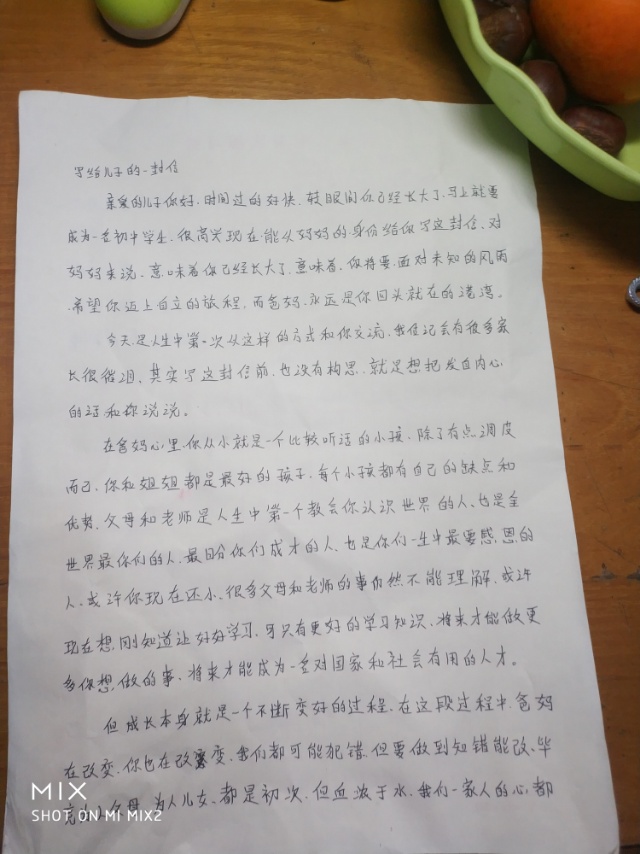 写给儿子的一封信
亲爱的儿子你好.时间过的好快.转眼间你已经长大了.马上就要
成为一名初中学生.很高兴现在能以妈妈的身份给你写这封信.对
妈妈来说.意味着你已经长大了.意味着.你将要.面对未知的风雨
.希望你迈上自立的旅程.而爸妈.永远是你回头就在的港湾。
今天.是人生中第一次以这样的方式和你交流.我
长很.其实写这封信前.也没有构思.就是想把发自内心
的话和你说说。
在爸妈心里.你从小就是一个比较听话的小孩.除了有点调皮
而已.你和姐姐都是最好的孩子.每个小孩都有自己的缺点和
优势.父母和老师是人生中第一个教会你认识世界的人、也是全
世界最你们的人.最盼你们成才的人.也是你们一生中最要感.恩的
人.或许你现在还小.很多父母和老师的事仍然不能理解.或许
现在想.刚知道让好好学习.可只有更好的学习知识、将来才能做更
多你想.做的事.将来才能成为一名对国家和社会有用的人才。
但成长本身就是一个不断变好的过程.在这段过程中.爸妈
在改变.你也在改变.我们都可能犯错.但要做到知错能改、毕
竟为人父母.为人儿女、都是初次.但血浓于水.我们一家人的心.都
MIX
SHOT ON MI MIX2